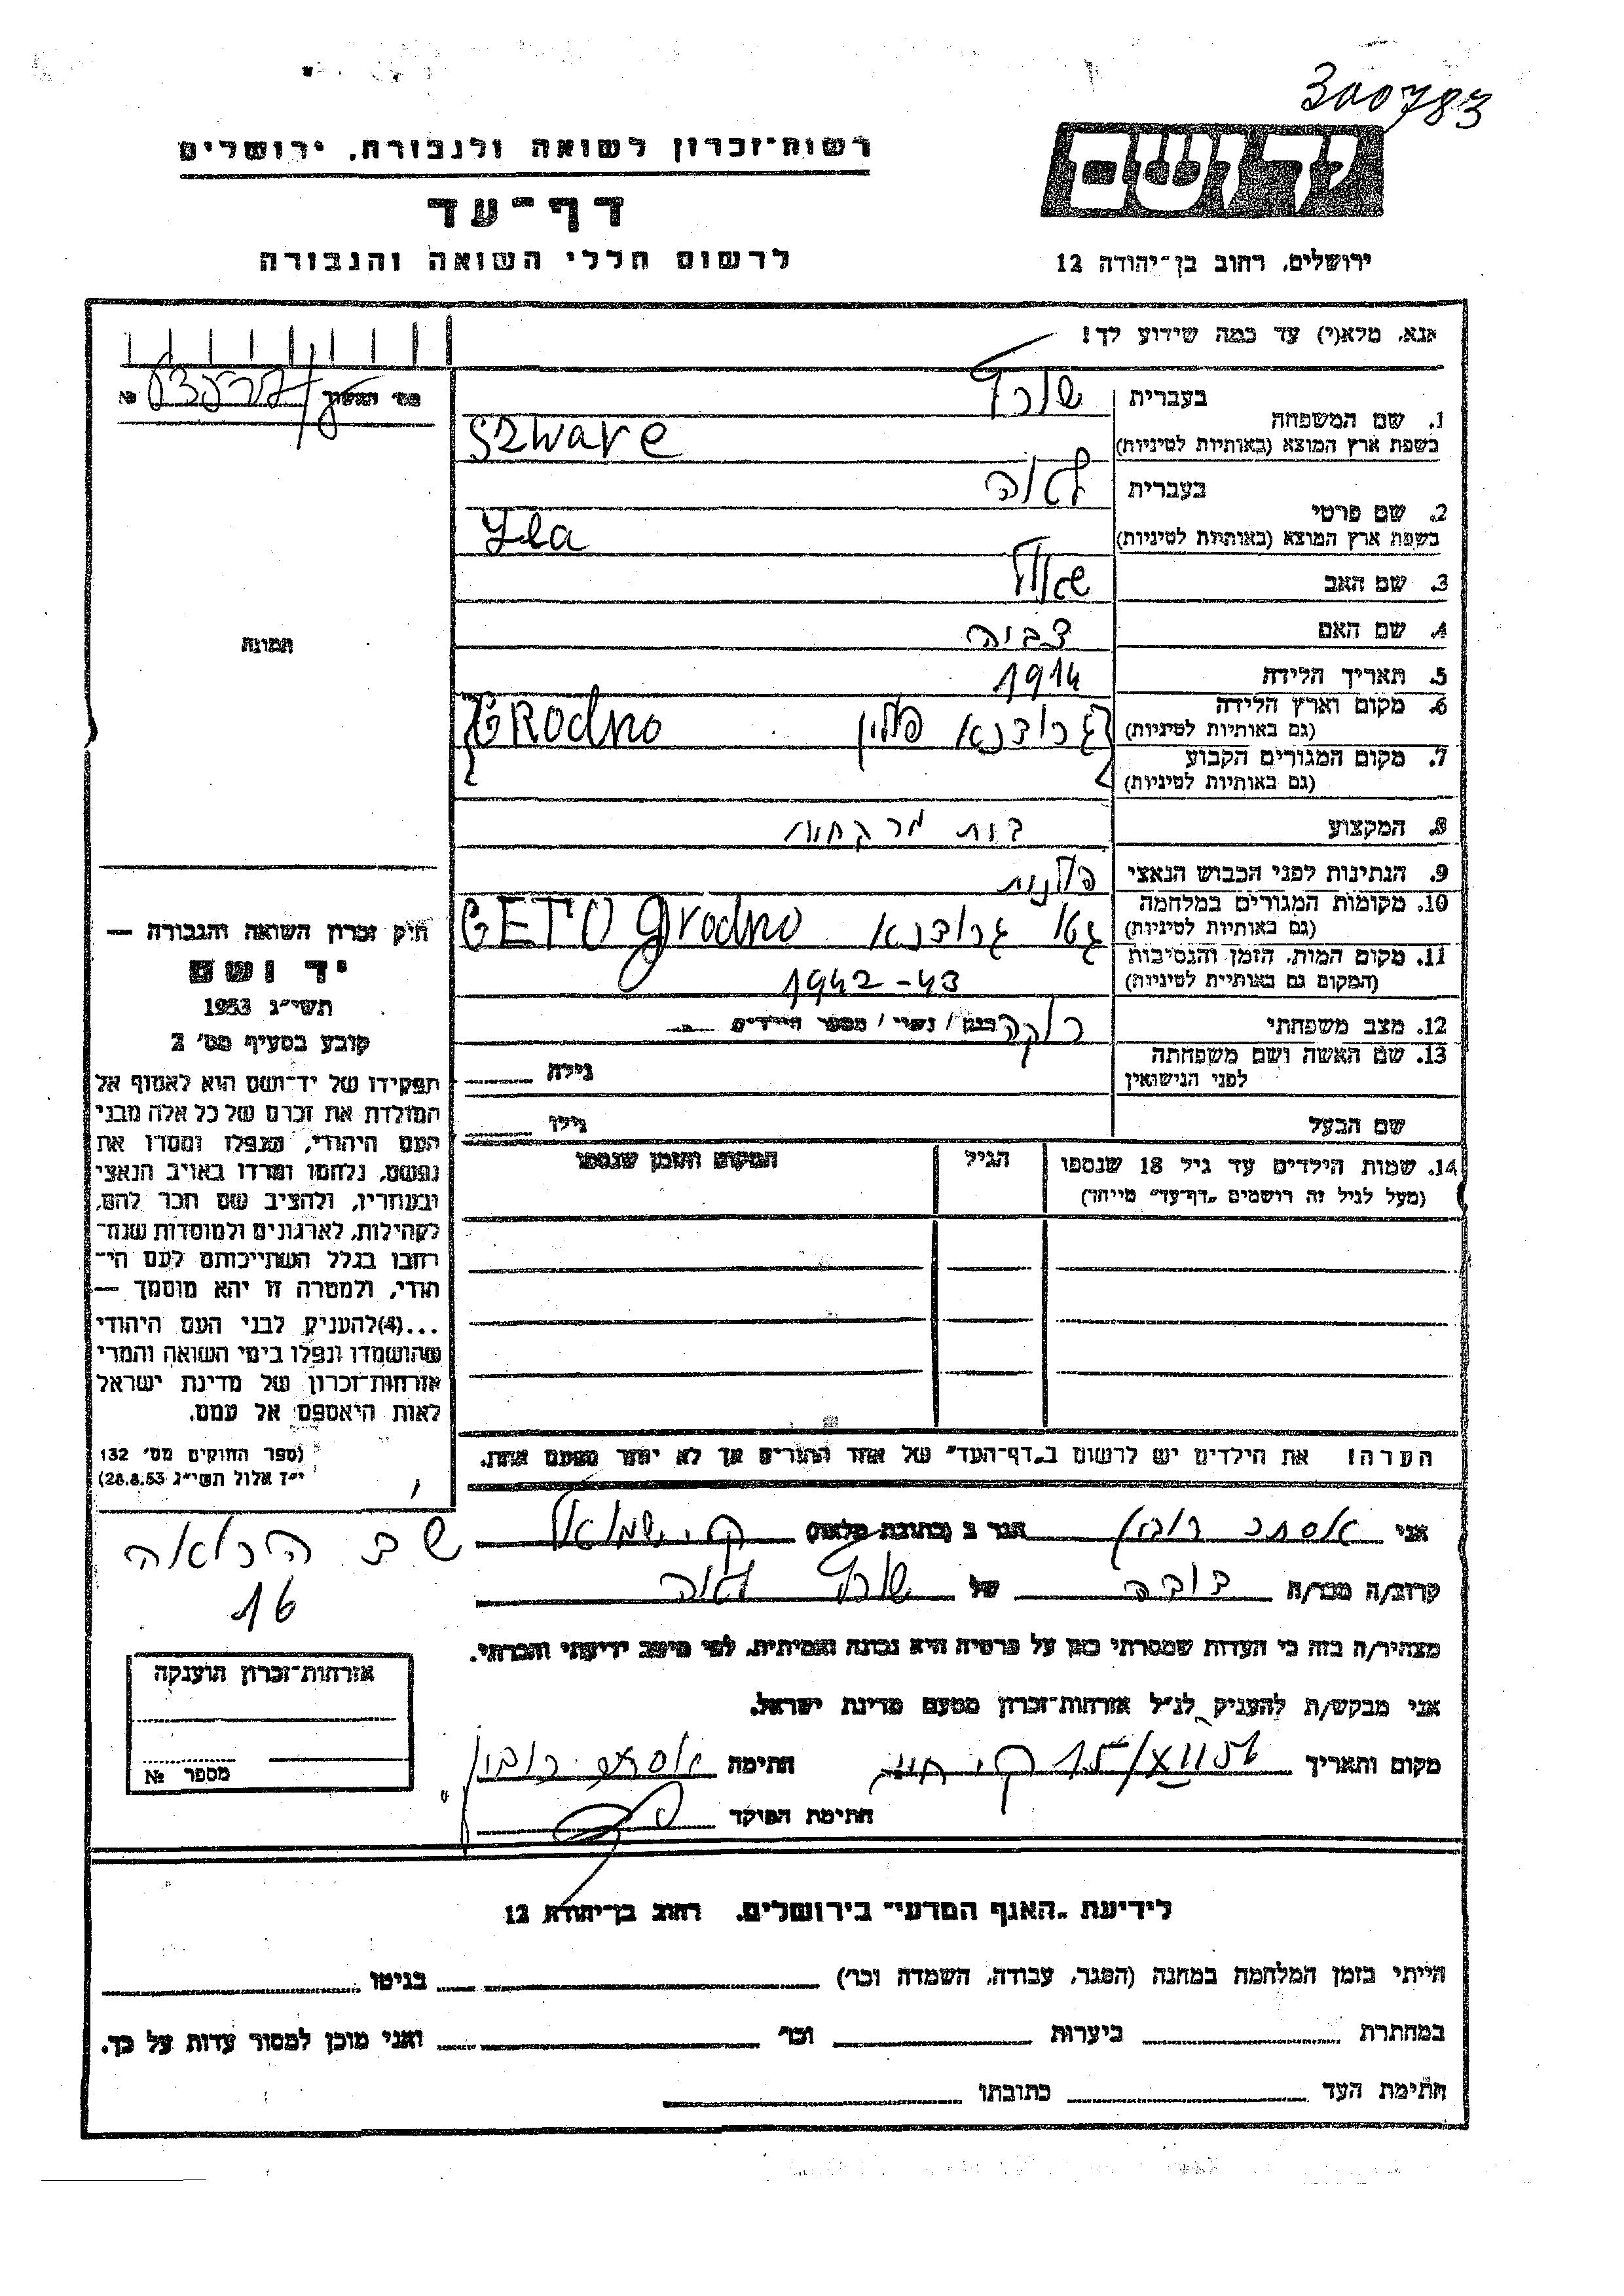 300783
רשות־זכרון לשואה ולגבורה, ירושלים
יד ושם
דף־עד
לרשום חללי השואה והגבורה
ירושלים, רחוב בן־יהודה 12
אנא, מלא(י) עד כמה שידוע לך!
1. שם המשפחה
בעברית שורץ
בשפת ארץ המוצא (באותיות לטיניות) Szwarc
2. שם פרטי
בעברית לאה
בשפת ארץ המוצא (באותיות לטיניות)
3. שם האב שאול
4. שם האם צביה
5. תאריך הלידה 1914
6. מקום וארץ הלידה גרודנא פולין GRodno
(גם באותיות לטיניות)
7. מקום המגורים הקבוע
(גם באותיות לטיניות)
8. המקצוע בית מרקחת
9. הנתינות לפני הכבוש הנאצי פולנית
10. מקומות המגורים במלחמה גטו גרודנא GETO grodno
(גם באותיות לטיניות)
11. מקום המות, הזמן והנסיבות 1942-43
(המקום גם באותיות לטיניות)
12. מצב משפחתי רוקה
13. שם האשה ושם משפחתה
לפני הנישואין
גילה
שם הבעל גילו
14. שמות הילדים עד גיל 18 שנספו הגיל המקום והזמן שנספו
(מעל לגיל זה רושמים „דף־עד״ מיוחד)
הערה! את הילדים יש לרשום ב„דף־העד״ של אחד ההורים אך לא יותר מפעם אחת.
№
תמונה
חוק זכרון השואה והגבורה —
יד ושם
תשי״ג 1953
קובע בסעיף מס׳ 2
תפקידו של יד־ושם הוא לאסוף אל
המולדת את זכרם של כל אלה מבני
העם היהודי, שנפלו ומסרו את
נפשם, נלחמו ומרדו באויב הנאצי
ובעוזריו, ולהציב שם וזכר להם,
לקהילות, לארגונים ולמוסדות שנח־
רבו בגלל השתייכותם לעם הי־
הודי, ולמטרה זו יהא מוסמך —
...(4) להעניק לבני העם היהודי
שהושמדו ונפלו בימי השואה והמרי
אזרחות־זכרון של מדינת ישראל
לאות היאספם אל עמם.
(ספר החוקים מס׳ 132
י״ז אלול תשי״ג 28.8.53)
אני אסתר רובין הגר ב (כתובת מלאה) ק. שמואל
16
קרוב/ה מכר/ה של שורץ לאה
מצהיר/ה בזה כי העדות שמסרתי כאן על פרטיה היא נכונה ואמיתית, לפי מיטב ידיעתי והכרתי.
אני מבקש/ת להעניק לנ״ל אזרחות־זכרון מטעם מדינת ישראל.
מקום ותאריך חתימה אסתר רובין
חתימת הפוקד
אזרחות־זכרון הוענקה
מספר №
לידיעת „האגף המדעי״ בירושלים, רחוב בן־יהודה 12
הייתי בזמן המלחמה במחנה (הסגר, עבודה, השמדה וכו׳) בגיטו
במחתרת ביערות וכו׳ ואני מוכן למסור עדות על כך.
חתימת העד כתובתו